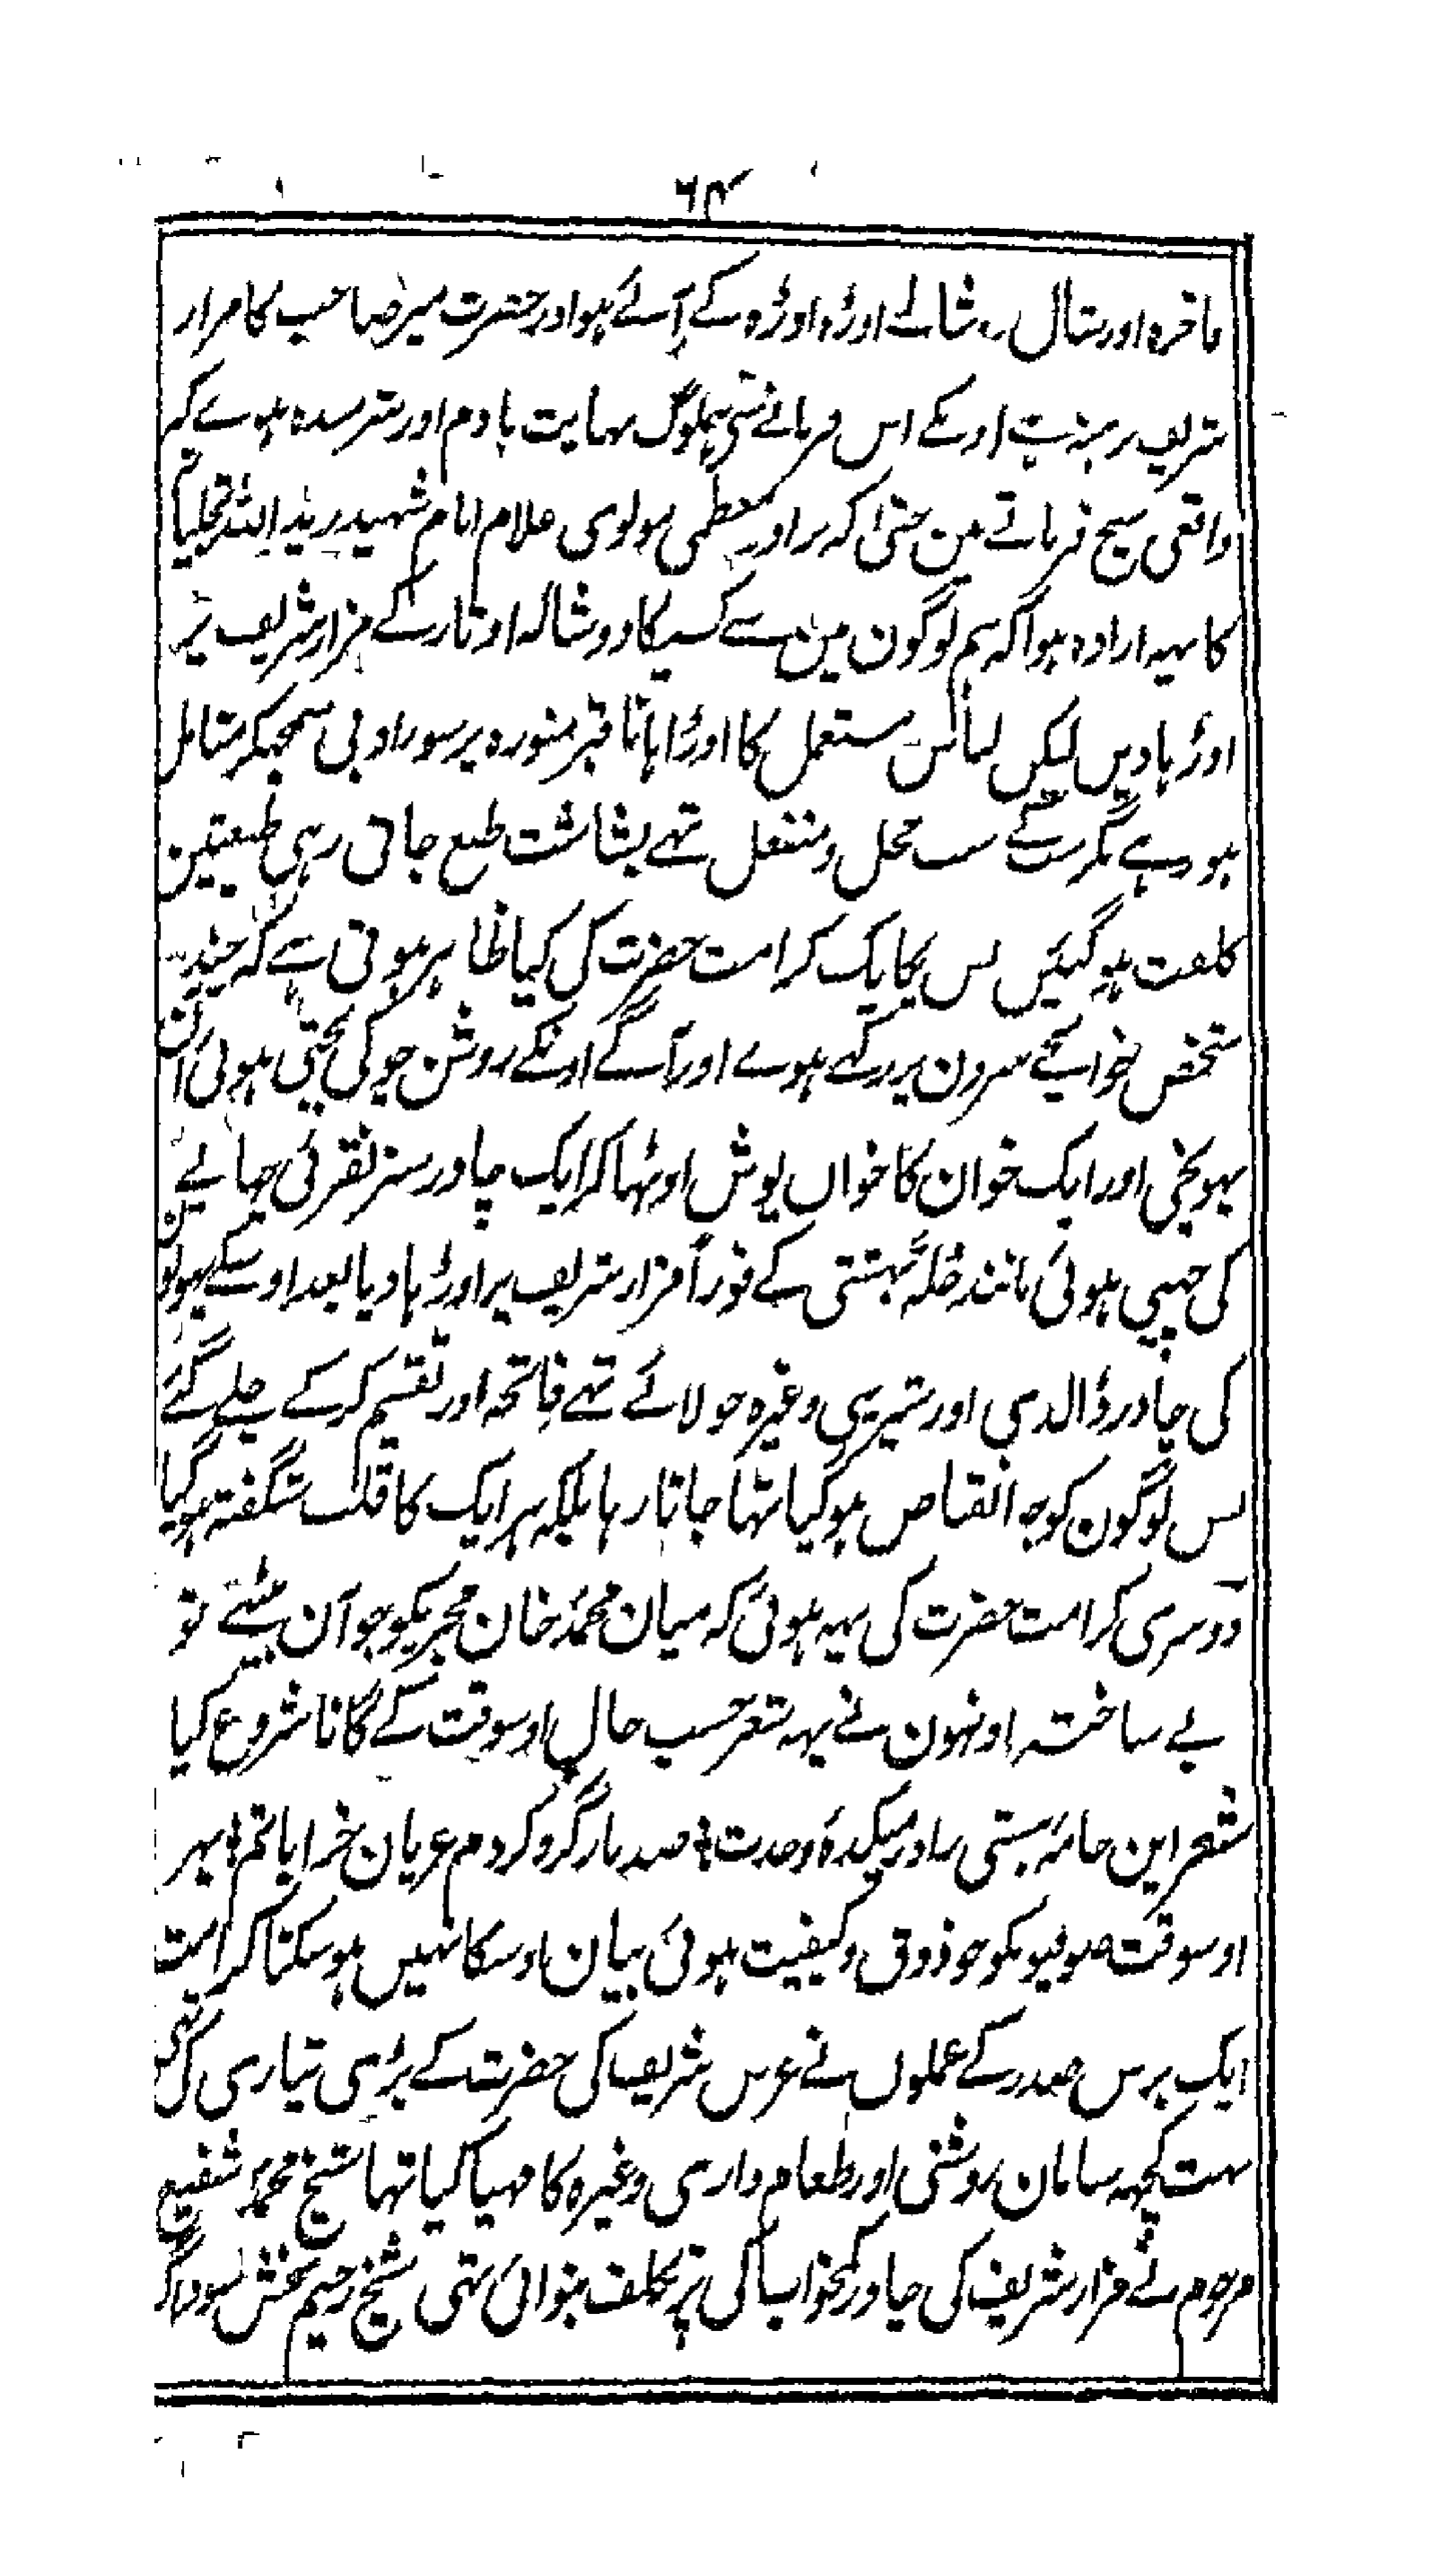 ۶۴
فاخرہ اور شال دوشالے اوڑہ اوڑہ کے آئے ہو اور حضرت میر صاحب کا مزار
شریف برہنہ ہے اونکے اس فرمانے سے ہملوگ نہایت نادم اور شرمندہ ہوے کہ
واقعی سچ فرماتے ہین حتی کہ برادر معظمی مولوی غلام امام شہید
کا یہہ ارادہ ہوا کہ ہم لوگون مین سے کسیکا دوشالہ اوتار کے مزار شریف پر
اوڑہا دیں لیکن لباس مستعمل کا اوڑاہانا قبر منورہ پر سور ادبی سمجہکر متامل
ہو رہے مگر سب کے سب خجل و منفعل تہے بشاشت طبع جاتی رہی طبیعتین
کلفت ہو گئیں بس یکایک کرامت حضرت کی کیا ظاہر ہوتی ہے کہ چند
شخص خوانچے سرون پر رکہے ہوے اور آگے اونکے روشن چوکی بجتی ہوئی آن
پہونچی اور ایک خوان کا خوان پوش اوٹہا کر ایک چادر سبز نقرئی چہاپے
کی چہپی ہوئی مانند حلۂ بہشتی کے فوراً مزار شریف پر اوڑہا دیا بعد اوسکے پہولون
کی چادر ڈالدی اور شیرینی وغیرہ جو لائے تہے فاتحہ اور تقسیم کر کے چلے گئے
بس لوگون کو جو انقباض ہو گیا تہا جاتا رہا بلکہ ہر ایک کا قلب شگفتہ ہو گیا
دوسری کرامت حضرت کی یہہ ہوئی کہ میان محمد خان مجریکو جو آن بیٹہے تو
بے ساختہ اونہون نے یہہ شعر حسب حال اوسوقت کے گانا شروع کیا
شعر این جامۂ ہستی را در میکدۂ وحدت ٭ صد بار گرو کردم عریان خراباتم ٭ پہر
اوسوقت صوفیونکو جو ذوق و کیفیت ہوئی بیان اوسکا نہیں ہو سکتا کرامت
ایک برس صدر کے عملوں نے عرس شریف کی حضرت کے بڑی تیاری کی تہی
بہت کچہہ سامان روشنی اور طعام داری وغیرہ کا مہیا کیا تہا شیخ محمد شفیع
مرحوم نے مزار شریف کی چادر کمخواب کی پر تکلف بنوائی تہی شیخ رحیم بخش سوداگر